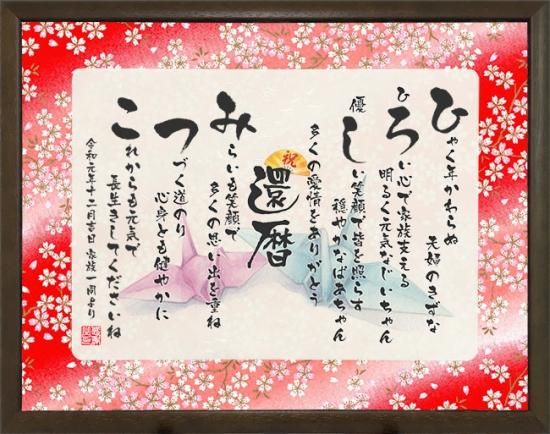 ひゃく年かわらぬ
夫婦のきずな
ひろい心で家族支える
明るく元気なじいちゃん
優しい笑顔で皆を照らす
穏やかなばあちゃん
多くの愛情をありがとう
祝
還暦
みらいも笑顔で
多くの思い出を重ね
つづく道のり
心身とも健やかに
これからも元気で
長生きしてくださいね
令和元年十二月吉日 家族一同より